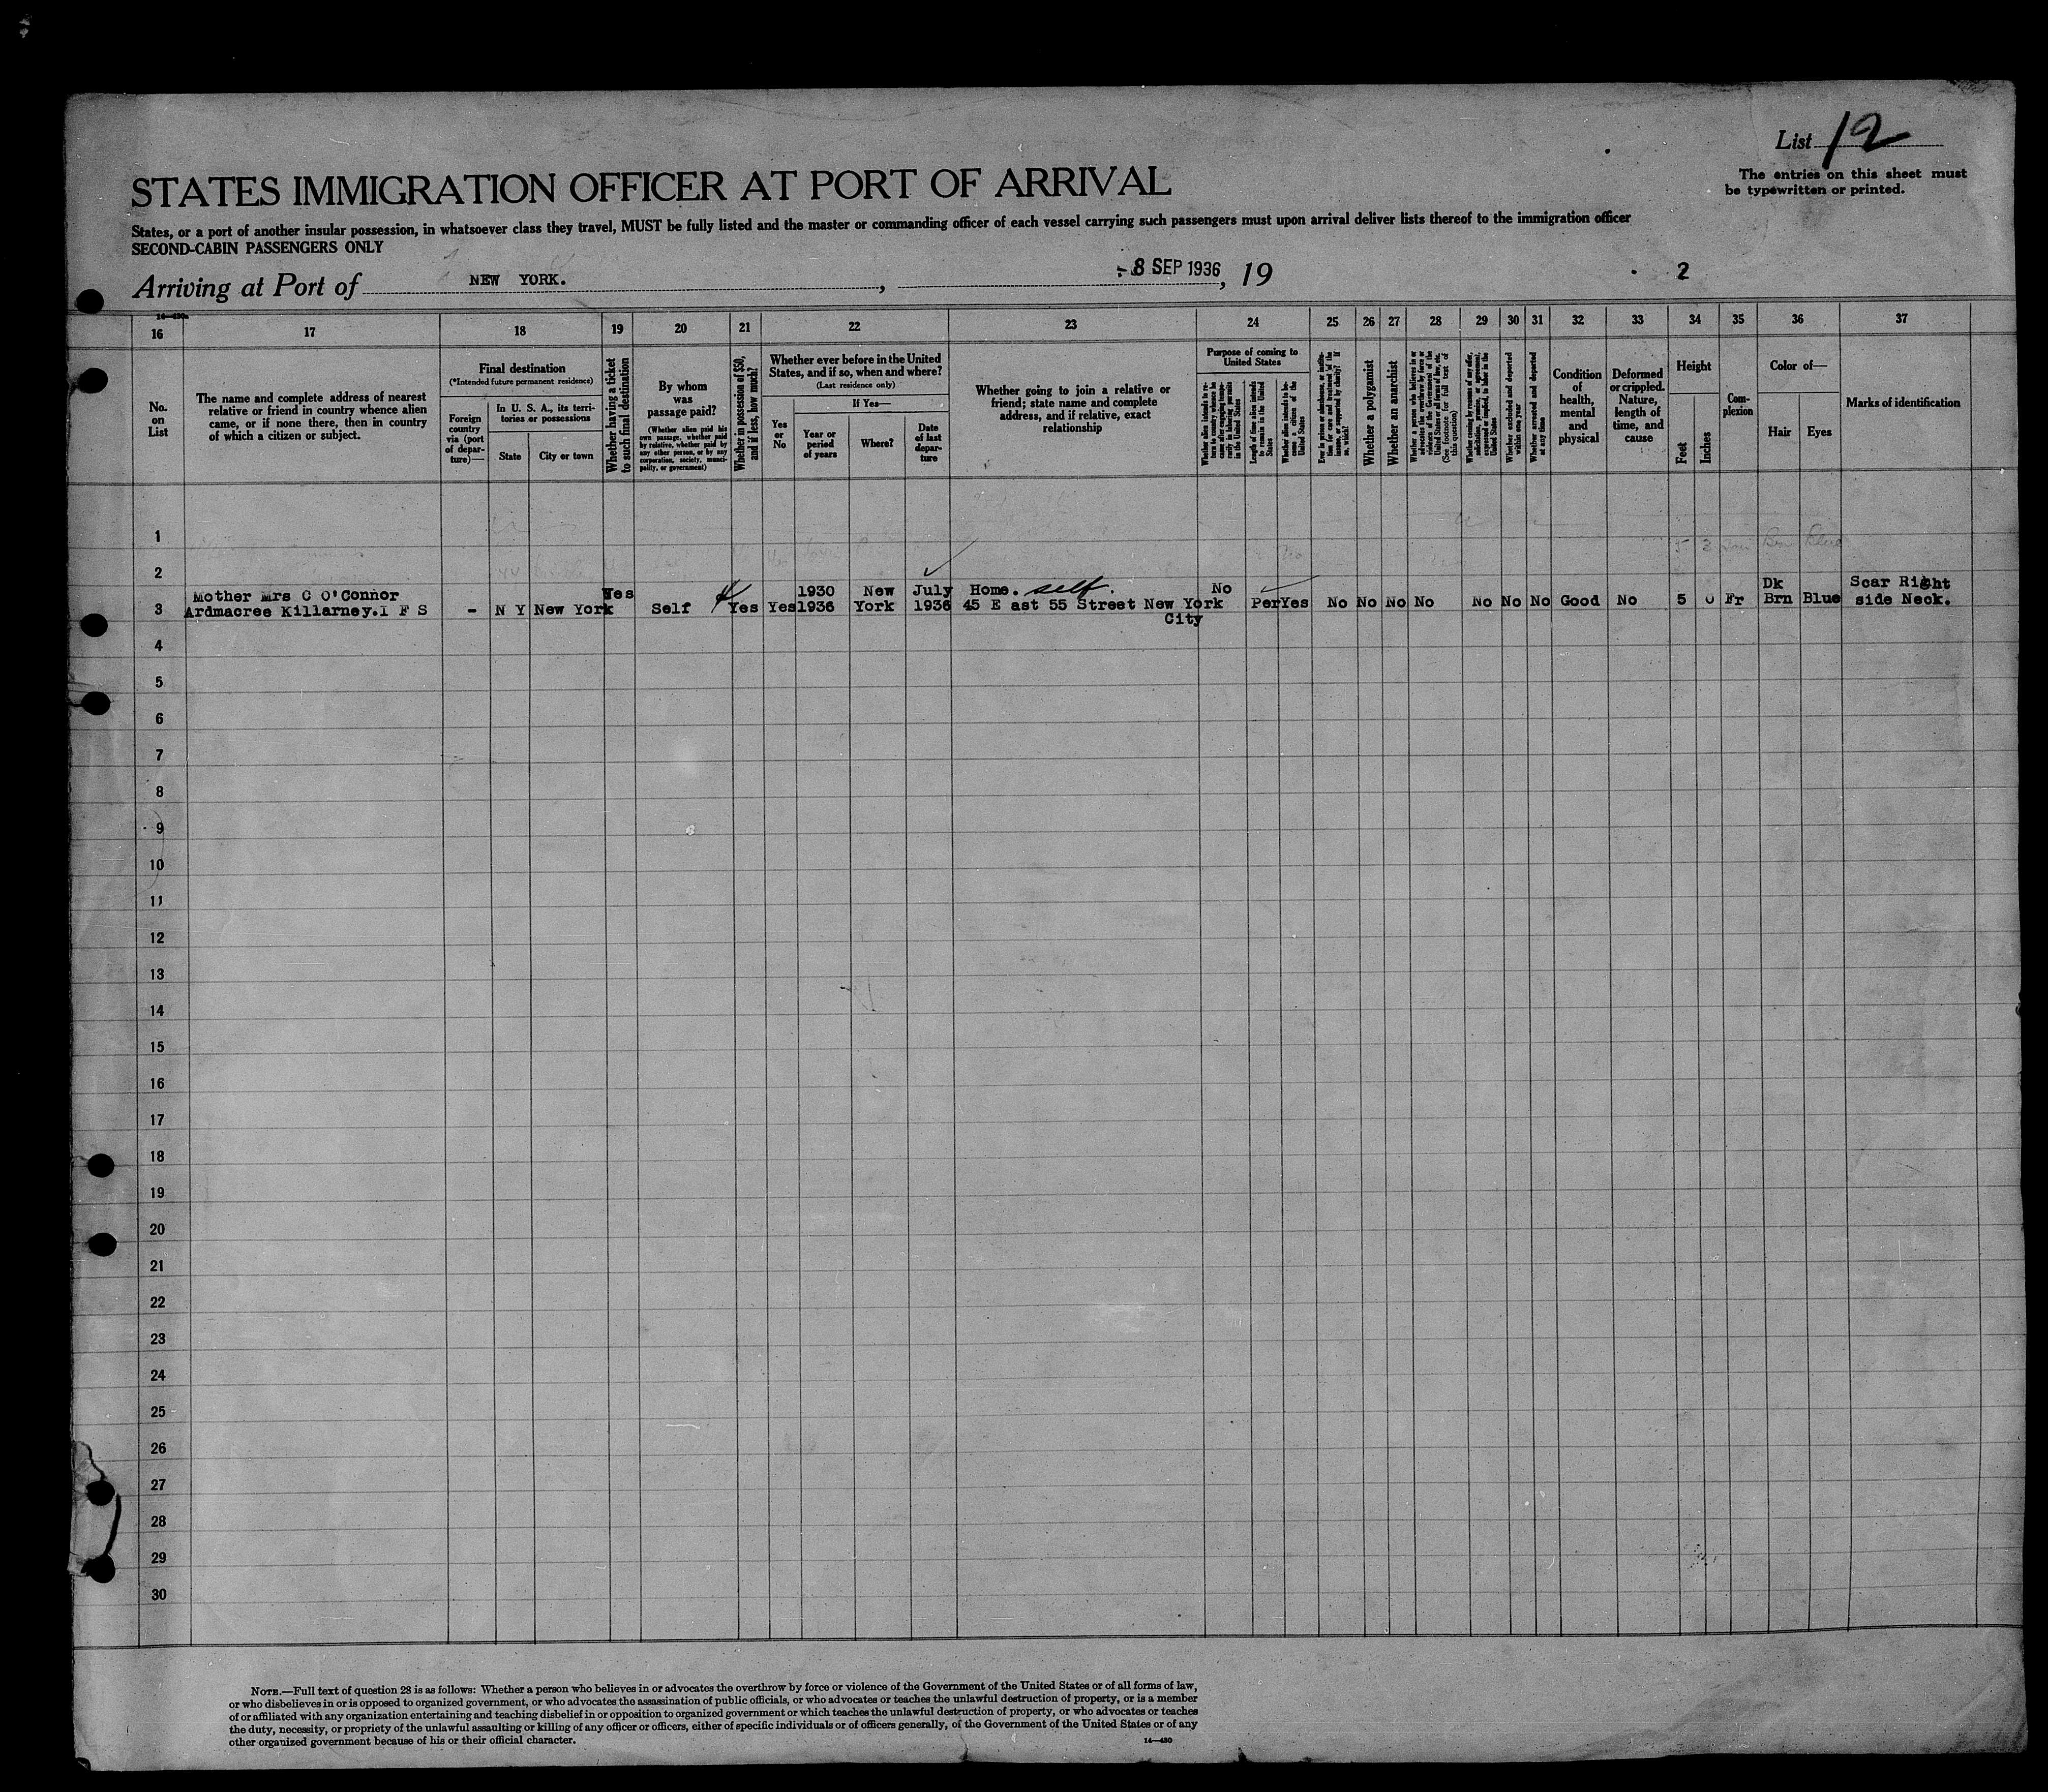 List 12
The entries on this sheet must
be typewritten or printed.
STATES IMMIGRATION OFFICER AT PORT OF ARRIVAL
States, or a port of another insular possession, in whatsoever class they travel, MUST be fully listed and the master or commanding officer of each vessel carrying such passengers must upon arrival deliver lists thereof to the immigration officer
SECOND-CABIN PASSENGERS ONLY
Arriving at Port of NEW YORK. , - 8 SEP 1936 , 19 2
16 17 18 19 20 21 22 23 24 25 26 27 28 29 30 31 32 33 34 35 36 37
No.
on
List
The name and complete address of nearest
relative or friend in country whence alien
came, or if none there, then in country
of which a citizen or subject.
Final destination
(*Intended future permanent residence)
Foreign
country
via (port
of depar-
ture)—
In U. S. A., its terri-
tories or possessions
State
City or town
Whether having a ticket
to such final destination
By whom
was
passage paid?
(Whether alien paid his
own passage, whether paid
by relative, whether paid by
any other person, or by any
corporation, society, munici-
pality, or government)
Whether in possession of $50,
and if less, how much?
Whether ever before in the United
States, and if so, when and where?
(Last residence only)
Yes
or
No
If Yes—
Year or
period
of years
Where?
Date
of last
depar-
ture
Whether going to join a relative or
friend; state name and complete
address, and if relative, exact
relationship
Purpose of coming to
United States
Whether alien intends to re-
turn to country whence he
came after engaging tempo-
rarily in laboring pursuits
in the United States
Length of time alien intends
to remain in the United
States
Whether alien intends to be-
come a citizen of the
United States
Ever in prison or almshouse, or institu-
tion for care and treatment of the
insane, or supported by charity? If
so, which?
Whether a polygamist
Whether an anarchist
Whether a person who believes in or
advocates the overthrow by force or
violence of the Government of the
United States or all forms of law, etc.
(See footnote for full text of
this question)
Whether coming by reason of any offer,
solicitation, promise, or agreement,
expressed or implied, to labor in the
United States
Whether excluded and deported
within one year
Whether arrested and deported
at any time
Condition
of
health,
mental
and
physical
Deformed
or crippled.
Nature,
length of
time, and
cause
Height
Feet
Inches
Com-
plexion
Color of—
Hair
Eyes
Marks of identification
1
2
Mother Mrs C O'Connor Yes 1930 New July Home. self. No Dk Scar Right
3 Ardmacree Killarney.I F S - N Y New York Self Yes Yes 1936 York 1936 45 E ast 55 Street New York Per Yes No No No No No No No Good No 5 0 Fr Brn Blue side Neck.
City
4
5
6
7
8
9
10
11
12
13
14
15
16
17
18
19
20
21
22
23
24
25
26
27
28
29
30
NOTE.—Full text of question 28 is as follows: Whether a person who believes in or advocates the overthrow by force or violence of the Government of the United States or of all forms of law,
or who disbelieves in or is opposed to organized government, or who advocates the assassination of public officials, or who advocates or teaches the unlawful destruction of property, or is a member
of or affiliated with any organization entertaining and teaching disbelief in or opposition to organized government or which teaches the unlawful destruction of property, or who advocates or teaches
the duty, necessity, or propriety of the unlawful assaulting or killing of any officer or officers, either of specific individuals or of officers generally, of the Government of the United States or of any
other organized government because of his or their official character.
14—430